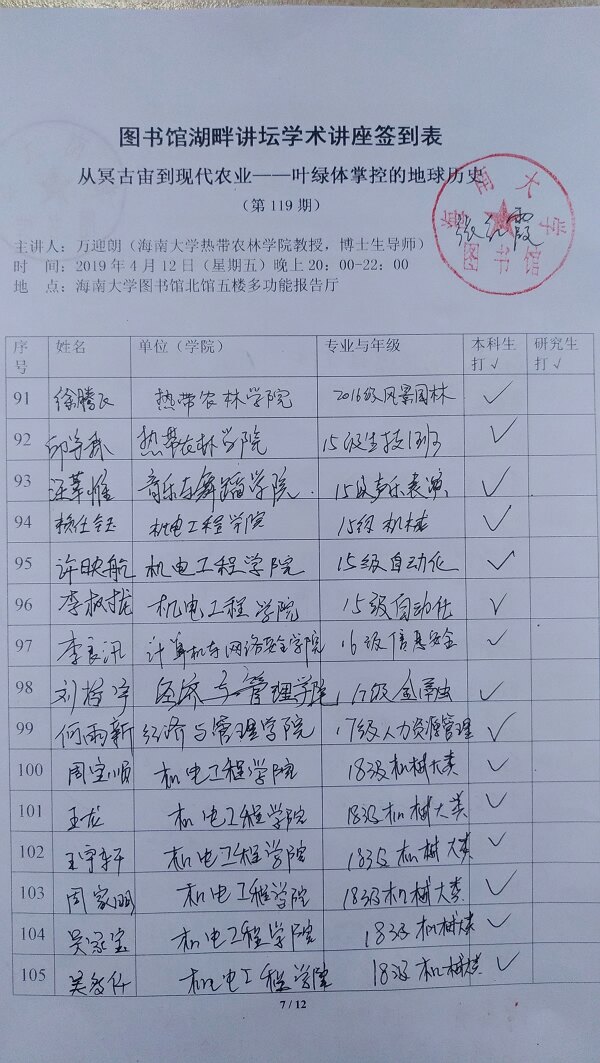 图书馆湖畔讲坛学术讲座签到表
从冥古宙到现代农业——叶绿体掌控的地球历史
（第 119 期）
海南大学
图书馆
主讲人：万迎朗（海南大学热带农林学院教授，博士生导师）
时 间：2019 年 4 月 12 日（星期五）晚上 20：00-22：00
地 点：海南大学图书馆北馆五楼多功能报告厅
序号 姓名 单位（学院） 专业与年级 本科生打√ 研究生打√
91 徐腾飞 热带农林学院 2016级风景园林 √
92 热带农林学院 15级生技 √
93 音乐与舞蹈学院 15级音乐表演 √
94 机电工程学院 15级机械 √
95 许映航 机电工程学院 15级自动化 √
96 机电工程学院 15级自动化 √
97 李良汛 计算机与网络安全学院 16级信息安全 √
98 刘梓宇 经济与管理学院 17级金融 √
99 何雨新 经济与管理学院 17级人力资源管理 √
100 周宝顺 机电工程学院 18级机械大类 √
101 王龙 机电工程学院 18级机械大类 √
102 王宇轩 机电工程学院 18级机械大类 √
103 周家明 机电工程学院 18级机械大类 √
104 机电工程学院 18级机械类 √
105 机电工程学院 18级机械类 √
7 / 12